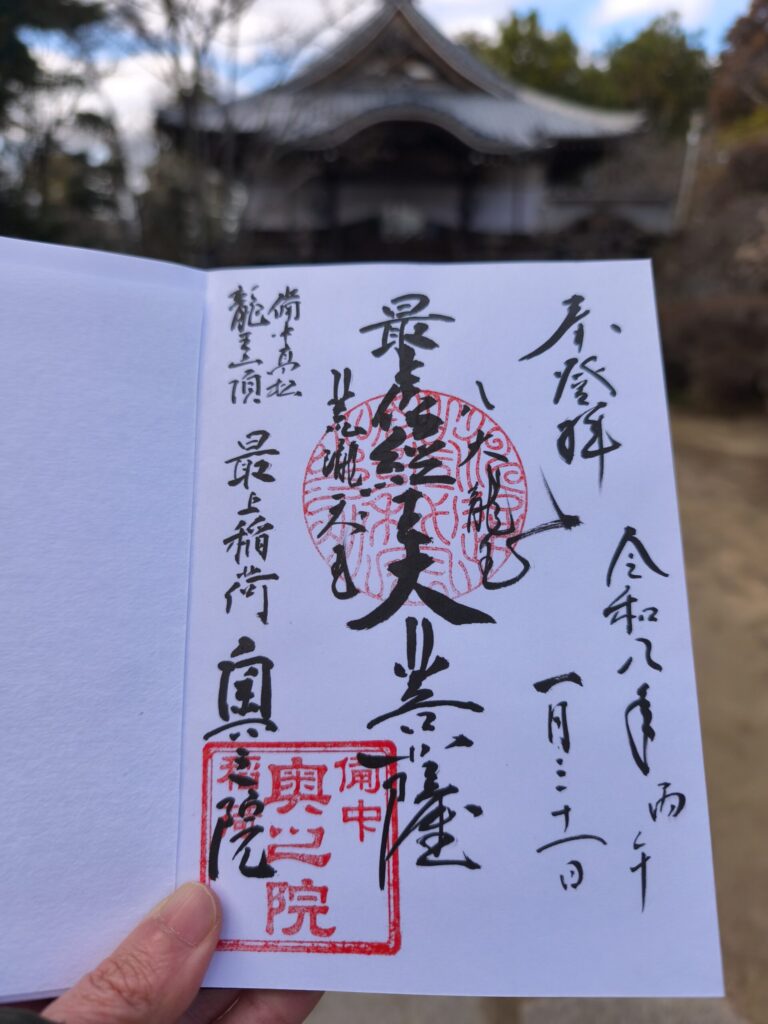 奉登拝
令和八年丙午
一月三十一日
八大龍王
最上位経王大菩薩
備中高松
龍王山頂
最上稲荷 奥之院
備中
奥之院
稲荷